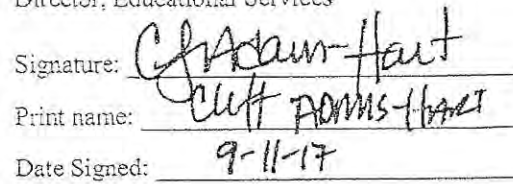 Director, Educational Services
Signature: CJ Adam-Hart
Print name: Cliff ADAMS-HART
Date Signed: 9-11-17